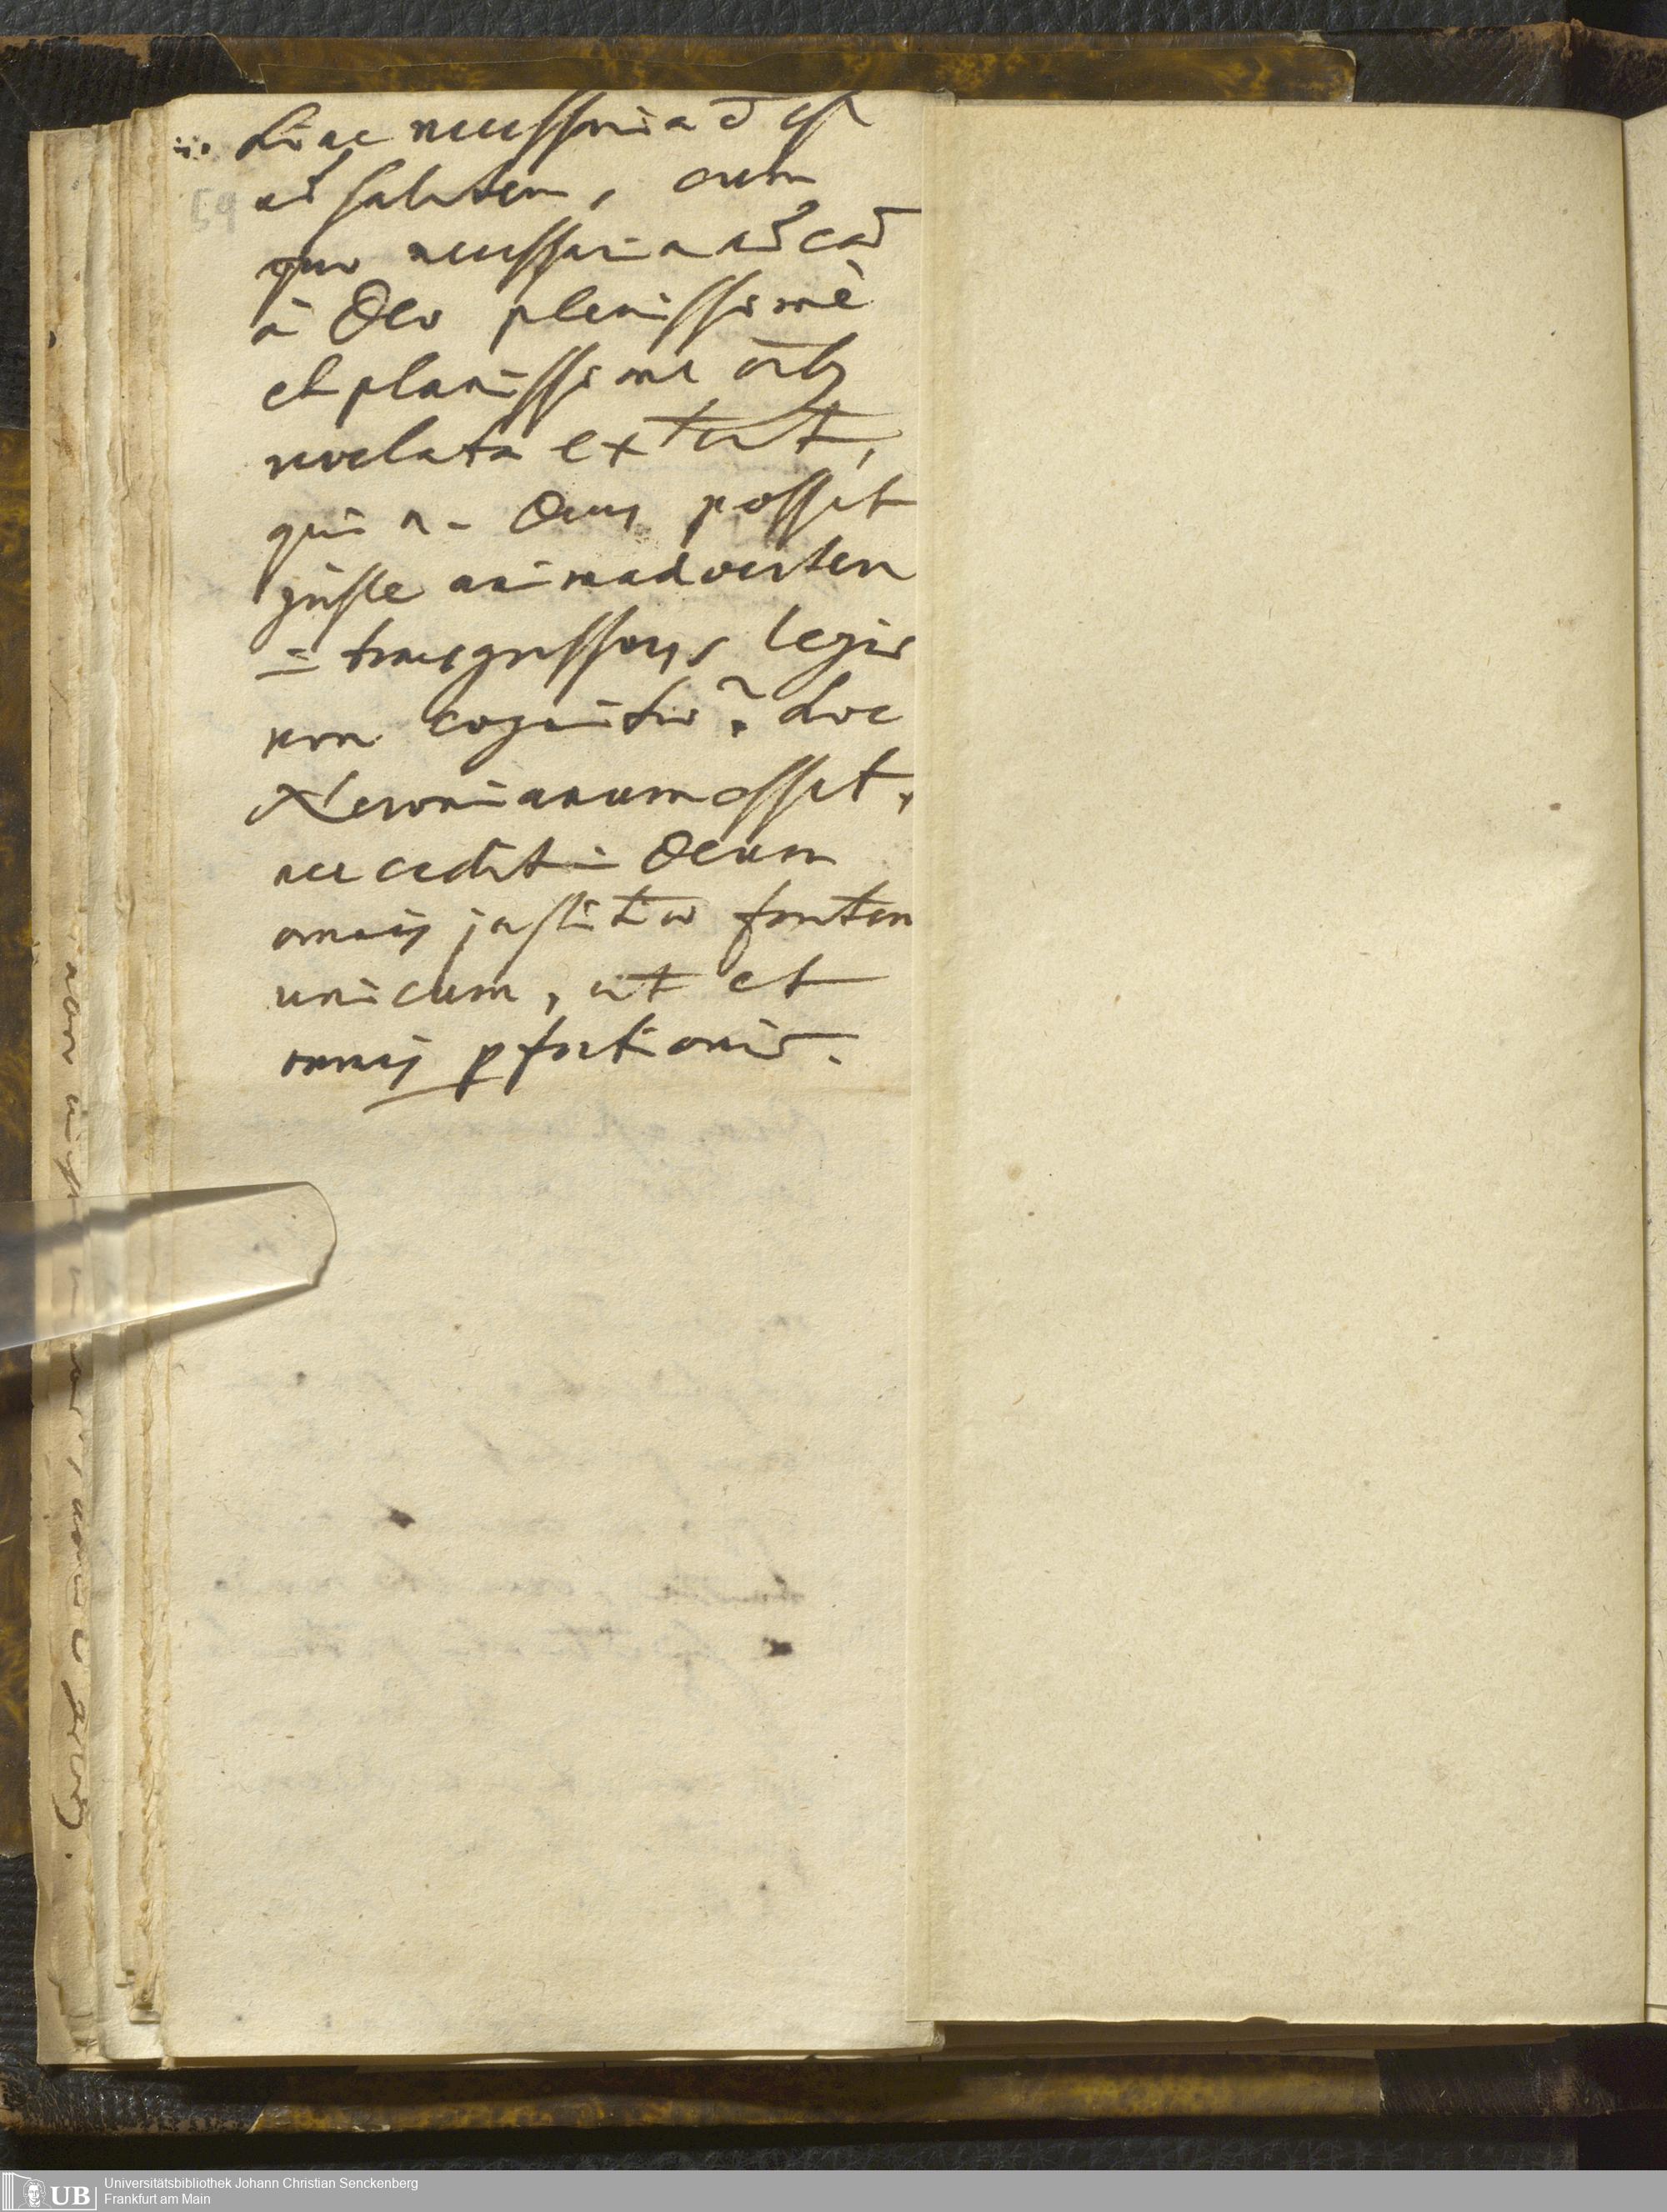 hinc necessaria ō est
ad salutem, cum
quae necessaria ad eā
à Deo plenissimè
et planissime oīb9
revelata extent,
qui n- Deus posset
juste animadvertere
= transgressores legis
non cognitae? hoc
Neronianum esset,
nec cadit in Deum
omnis justitiae fontem
unicum, ut et
omnis pfectionis.
59
Universitätsbibliothek Johann Christian Senckenberg
Frankfurt am Main
UB